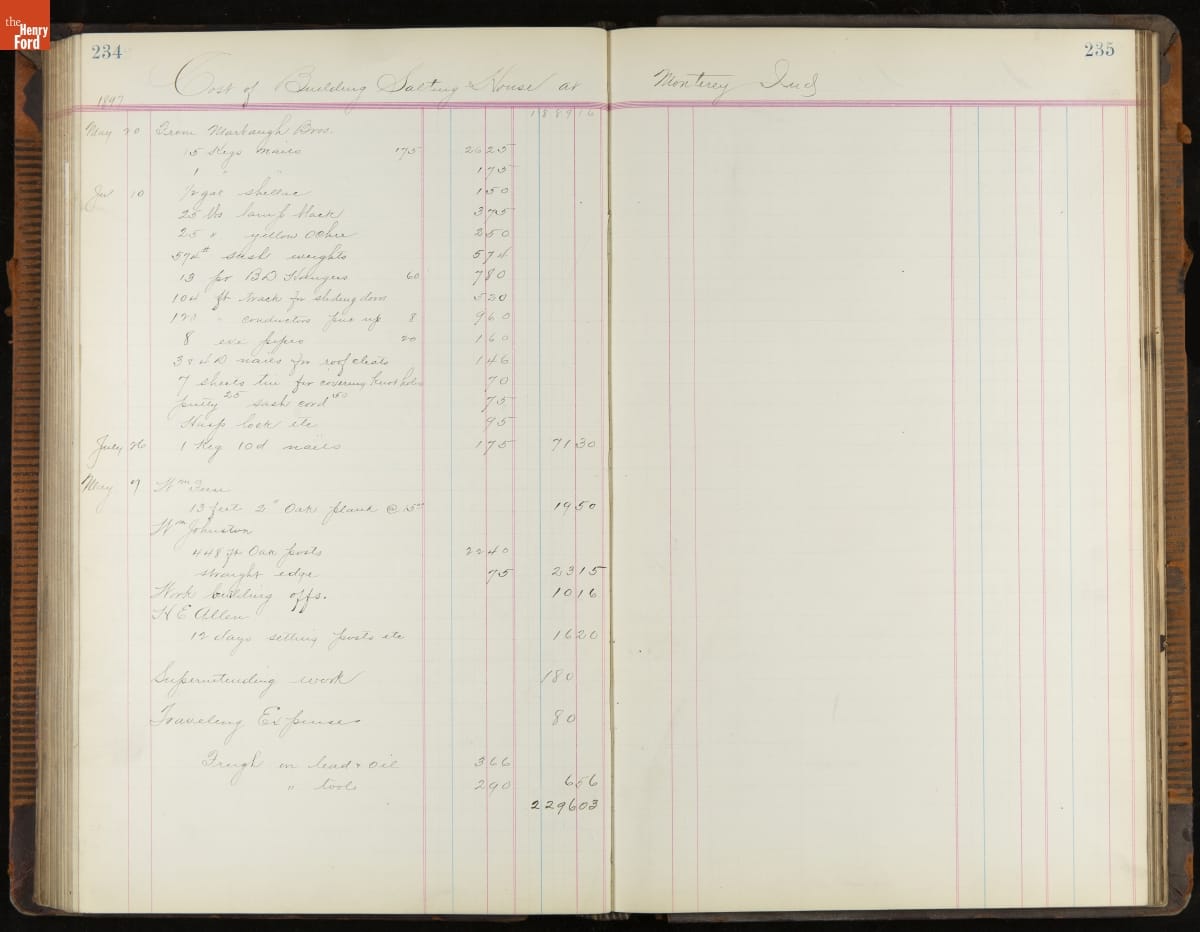 the
Henry
Ford
234
235
Cost of Building Salting House at Monterey Ind
1897
188916
May 20 From Marbaugh Bros.
15 Kegs nails 175 2625
1 " " 175
10 1/2 gal shellac 150
25 lbs lamp black 375
25 " yellow Ochre 250
574# sash weights 574
13 pr BD Hangers 60 780
104 ft track for sliding doors 520
120 " conductors put up 8 960
8 eve pipes 20 160
3 & 4 D nails for roof cleats 146
7 sheets tin for covering knot holes 70
putty 25 sash cord 50 75
Hasp lock etc 95
July 26 1 Keg 10d nails 175 7130
May 7 Wm
13 feet 2" Oak plank @ 15 1950
Wm Johnston
448 ft Oak posts 2240
straight edge 75 2315
Work building offs. 1016
H E Allen
12 days setting posts etc 1620
Superintending work 180
Traveling Expenses 80
Freigh on lead & oil 366
" tools 290 656
229603